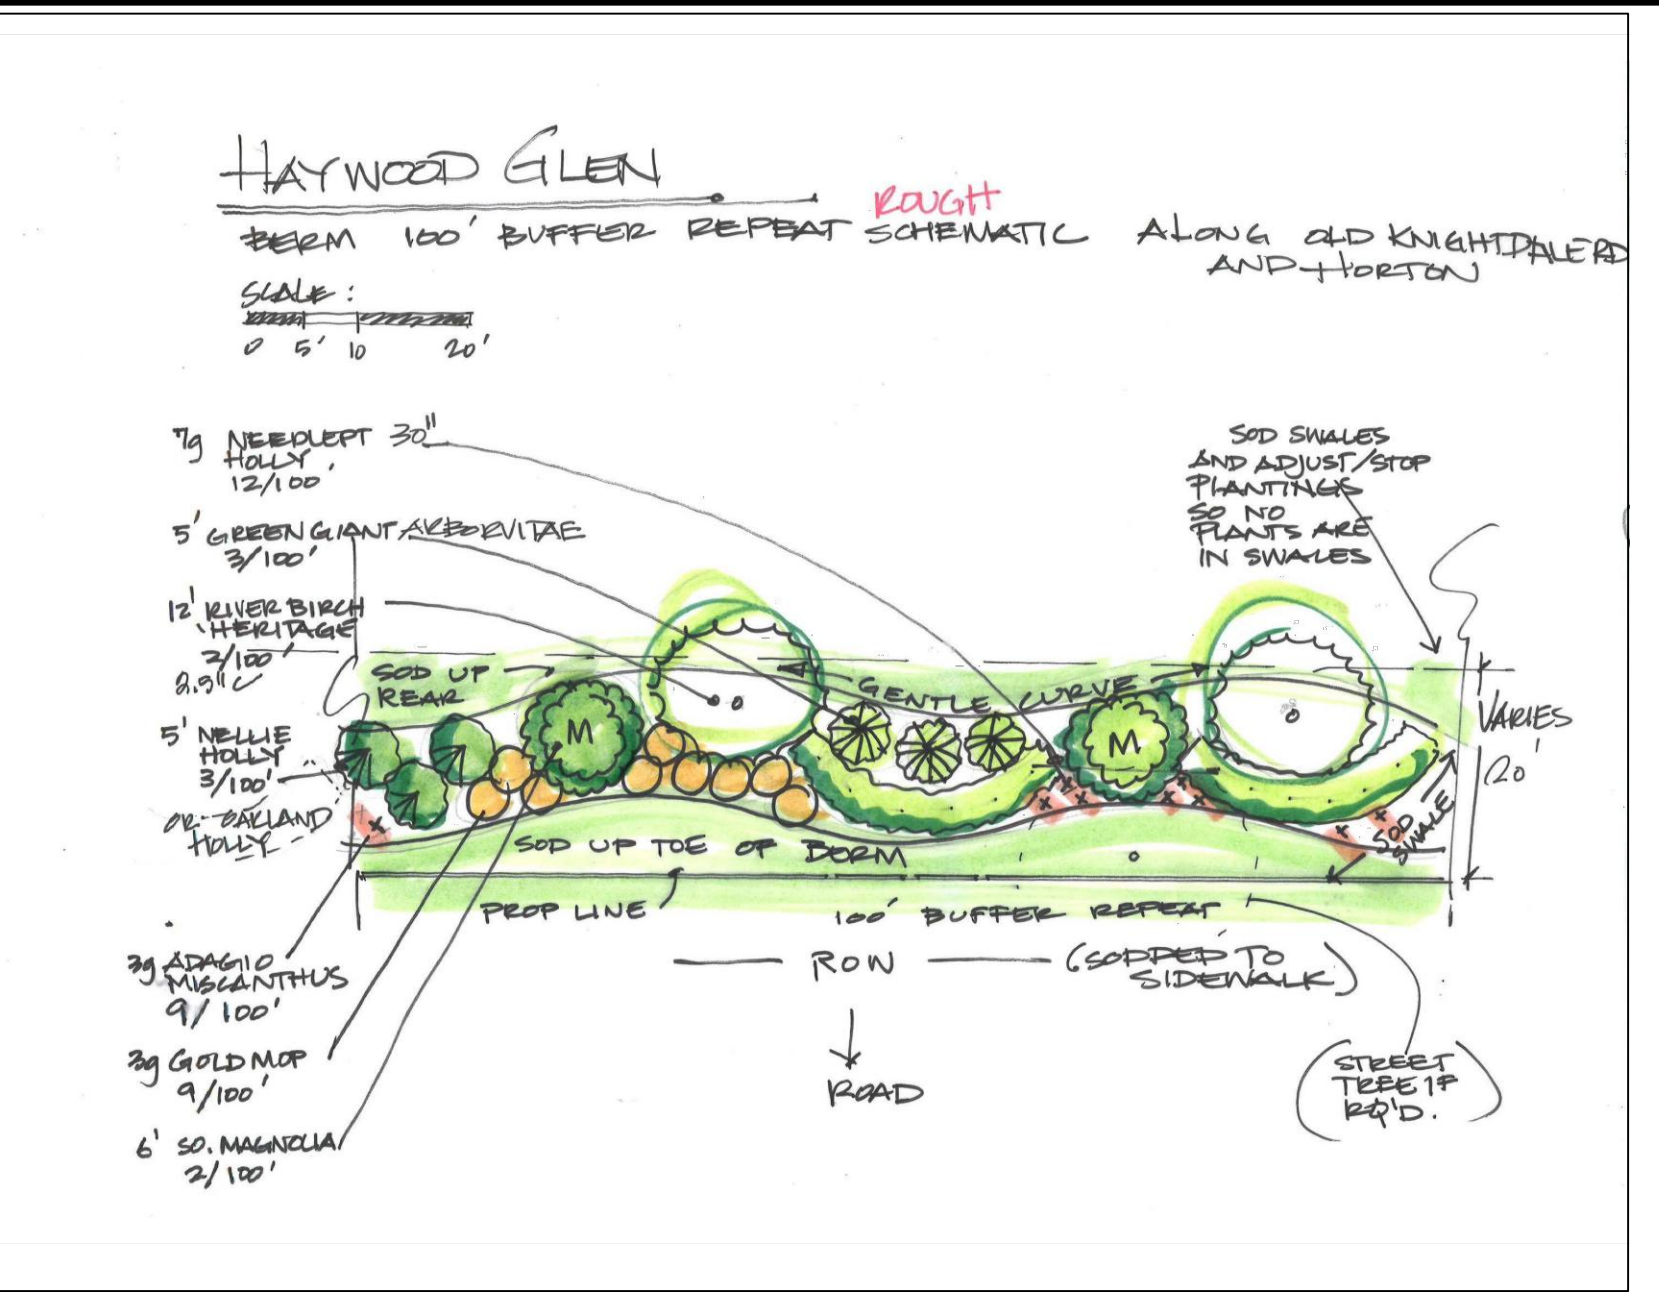 HAYWOOD GLEN
ROUGH
BERM 100' BUFFER REPEAT SCHEMATIC ALONG OLD KNIGHTDALE RD
AND HORTON
SCALE:
0 5' 10 20'
7g NEEDLEPT 30"
HOLLY
12/100'
5' GREEN GIANT ARBORVITAE
3/100'
12' RIVER BIRCH
'HERITAGE
2/100'
2.5"C
5' NELLIE
HOLLY
3/100'
OR OAKLAND
HOLLY
SOD SWALES
AND ADJUST/STOP
PLANTINGS
SO NO
PLANTS ARE
IN SWALES
SOD UP
REAR
GENTLE CURVE
M
M
VARIES
20'
SOD
SWALE
SOD UP TOE OF BERM
PROP LINE
100' BUFFER REPEAT
ROW
(SODDED TO
SIDEWALK)
ROAD
(STREET
TREE IF
RQ'D.)
3g ADAGIO
MISCANTHUS
9/100'
3g GOLD MOP
9/100'
6' SO. MAGNOLIA
2/100'